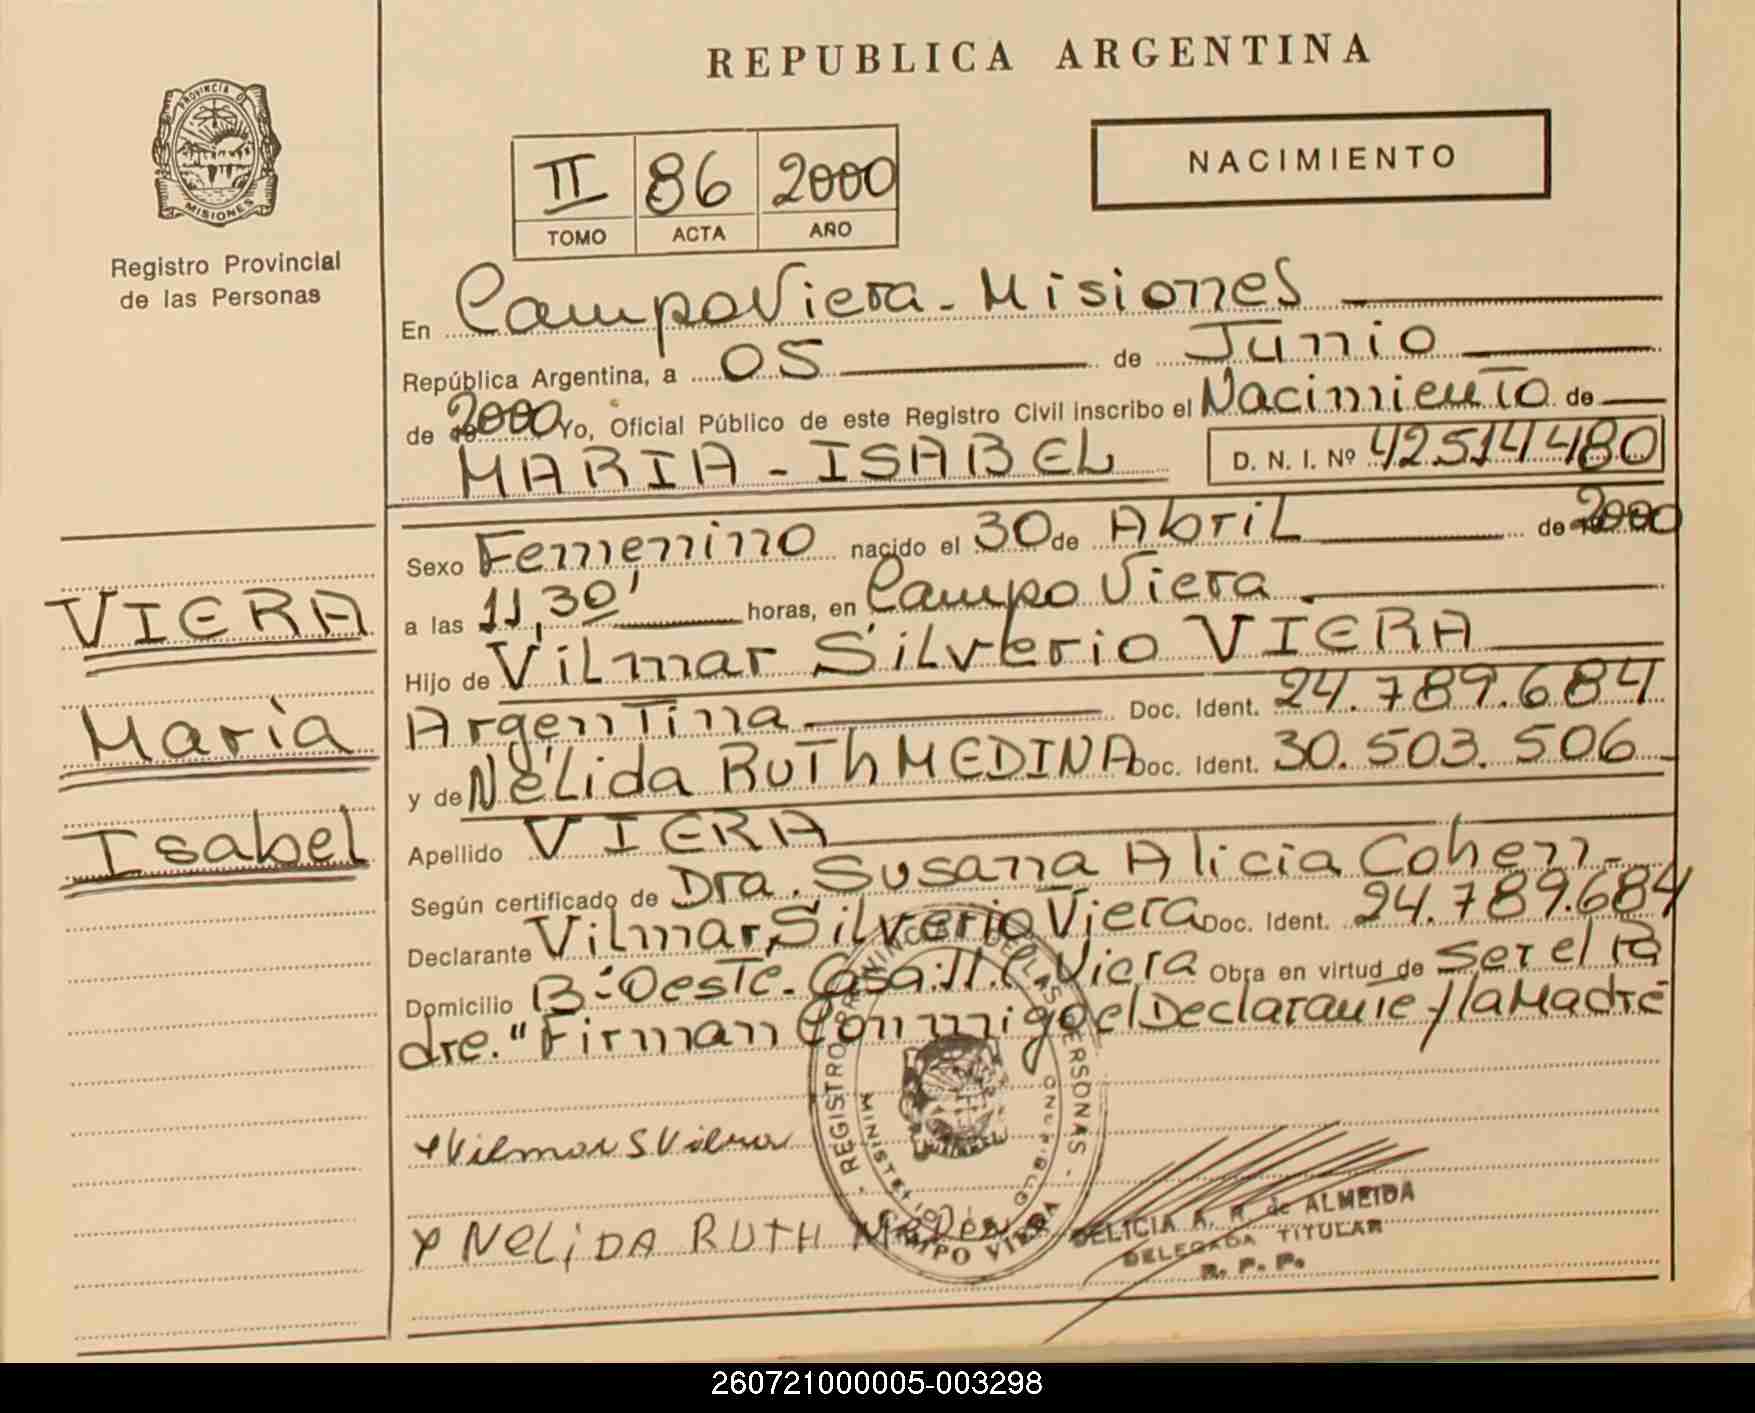 REPUBLICA ARGENTINA
PROVINCIA DE
MISIONES
Registro Provincial
de las Personas
II 86 2000
TOMO ACTA AÑO
NACIMIENTO
En Campo Viera - Misiones
República Argentina, a 05 de Junio
de 2000 Yo, Oficial Público de este Registro Civil inscribo el Nacimiento de
MARIA - ISABEL D. N. I. Nº 42.514480
Sexo Femenino nacido el 30 de Abril de 2000
a las 11,30' horas, en Campo Viera
Hijo de Vilmar Silverio VIERA
Argentina Doc. Ident. 24.789.684
y de Nélida RUTh MEDINA Doc. Ident. 30.503.506
Apellido VIERA
Según certificado de Dra. Susana Alicia Cohen-
Declarante Vilmar Silverio Viera Doc. Ident. 24.789.684
Domicilio Bº Oeste - Casa: Viera Obra en virtud de ser el Pa
dre." Firman Conmigo el Declarante y la Madre
VIERA
María
Isabel
Vilmar S Viera
NELiDA RUTH
REGISTRO PROVINCIAL DE LAS PERSONAS
CAMPO VIERA
DELICIA A. R. de ALMEIDA
DELEGADA TITULAR
R. P. P.
260721000005-003298